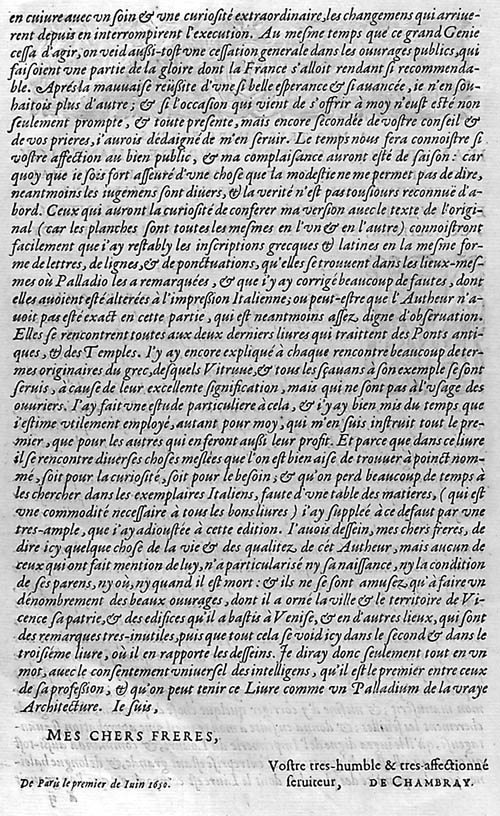 en cuiure auec vn soin & vne curiosité extraordinaire, les changemens qui arriue-
rent depuis en interrompirent l'execution. Au mesme temps que ce grand Genie
cessa d'agir, on veid außi-tost vne cessation generale dans les ouurages publics, qui
faisoient vne partie de la gloire dont la France s'alloit rendant si recommenda-
ble. Aprés la mauuaise reüßite d'vne si belle esperance & si auancée, ie n'en sou-
haitois plus d'autre; & si l'occasion qui vient de s'offrir à moy n'eust esté non
seulement prompte, & toute presente, mais encore secondée de vostre conseil &
de vos prieres, i'aurois dédaigné de m'en seruir. Le temps nous fera connoistre si
vostre affection au bien public, & ma complaisance auront esté de saison: car
quoy que ie sois fort asseuré d'vne chose que la modestie ne me permet pas de dire,
neantmoins les iugemens sont diuers, & la verité n'est pas tousiours reconnuë d'a-
bord. Ceux qui auront la curiosité de conferer ma version auec le texte de l'origi-
nal (car les planches sont toutes les mesmes en l'vn & en l'autre) connoistront
facilement que i'ay restably les inscriptions grecques & latines en la mesme for-
me de lettres, de lignes, & de ponctuations, qu'elles se trouuent dans les lieux-mes-
mes où Palladio les a remarquées, & que i'y ay corrigé beaucoup de fautes, dont
elles auoient esté alterées à l'impreßion Italienne; ou peut-estre que l'Autheur n'a-
uoit pas esté exact en cette partie, qui est neantmoins assez digne d'obseruation.
Elles se rencontrent toutes aux deux derniers liures qui traittent des Ponts anti-
ques, & des Temples. I'y ay encore expliqué à chaque rencontre beaucoup de ter-
mes originaires du grec, desquels Vitruue, & tous les sçauans à son exemple se sont
seruis, à cause de leur excellente signification, mais qui ne sont pas à l'vsage des
ouuriers. I'ay fait vne estude particuliere à cela, & i'y ay bien mis du temps que
i'estime vtilement employé, autant pour moy, qui m'en suis instruit tout le pre-
mier, que pour les autres qui en feront außi leur profit. Et parce que dans ce liure
il se rencontre diuerses choses meslées que l'on est bien aise de trouuer à poinct nom-
mé, soit pour la curiosité, soit pour le besoin; & qu'on perd beaucoup de temps à
les chercher dans les exemplaires Italiens, faute d'vne table des matieres, (qui est
vne commodité necessaire à tous les bons liures) i'ay suppleé à ce defaut par vne
tres-ample, que i'ay adioustée à cette edition. I'auois dessein, mes chers freres, de
dire icy quelque chose de la vie & des qualitez de cét Autheur, mais aucun de
ceux qui ont fait mention de luy, n'a particularisé ny sa naissance, ny la condition
de ses parens, ny où, ny quand il est mort: & ils ne se sont amusez qu'à faire vn
dénombrement des beaux ouurages, dont il a orné la ville & le territoire de Vi-
cence sa patrie, & des edifices qu'il a bastis à Venise, & en d'autres lieux, qui sont
des remarques tres-inutiles, puis que tout cela se void icy dans le second & dans le
troisiéme liure, où il en rapporte les desseins. Je diray donc seulement tout en vn
mot, auec le consentement vniuersel des intelligens, qu'il est le premier entre ceux
de sa profeßion, & qu'on peut tenir ce Liure comme vn Palladium de la vraye
Architecture. Ie suis,
MES CHERS FRERES,
Vostre tres-humble & tres-affectionné
seruiteur, DE CHAMBRAY.
De Paris le premier de Iuin 1650.